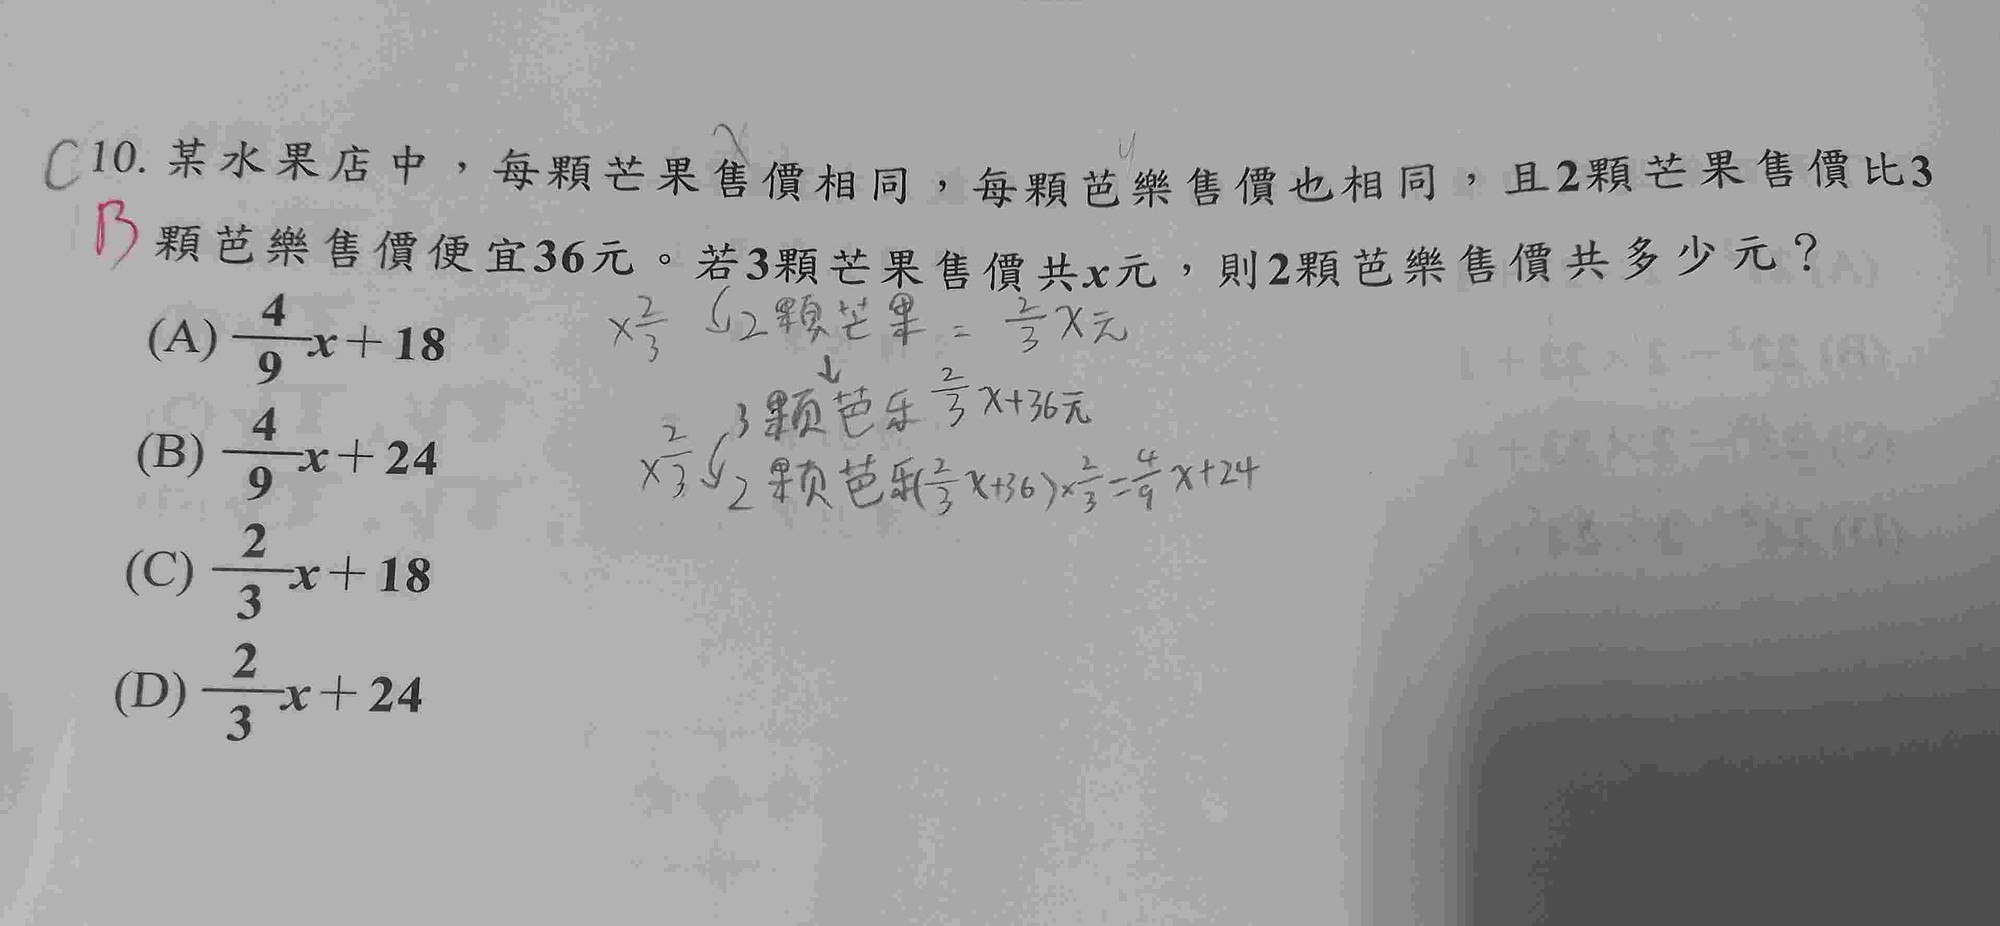 x y
C 10. 某水果店中，每顆芒果售價相同，每顆芭樂售價也相同，且2顆芒果售價比3
B 顆芭樂售價便宜36元。若3顆芒果售價共x元，則2顆芭樂售價共多少元？
(A) 4/9 x + 18
×2/3 2顆芒果 = 2/3 x元
3顆芭乐 2/3 x+36元
(B) 4/9 x + 24
×2/3 2顆芭乐(2/3 x+36)×2/3=4/9 x+24
(C) 2/3 x + 18
(D) 2/3 x + 24